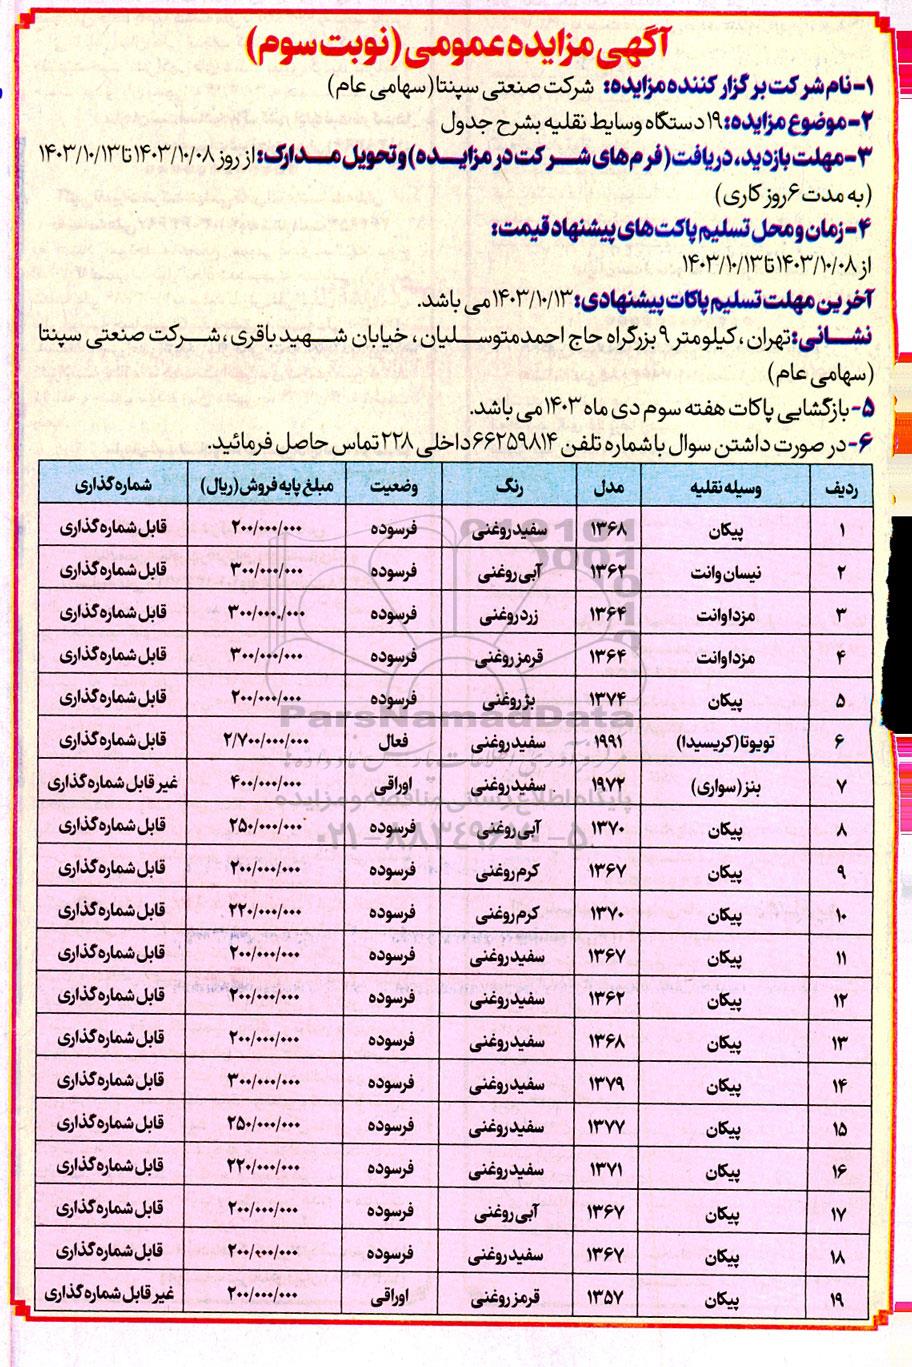 آگهی مزایده عمومی (نوبت سوم)
۱- نام شرکت برگزار کننده مزایده: شرکت صنعتی سپنتا (سهامی عام)
۲- موضوع مزایده: ۱۹ دستگاه وسایط نقلیه بشرح جدول
۳- مهلت بازدید، دریافت (فرم‌های شرکت در مزایده) و تحویل مدارک: از روز ۱۴۰۳/۱۰/۰۸ تا ۱۴۰۳/۱۰/۱۳
(به مدت ۶ روز کاری)
۴- زمان و محل تسلیم پاکت‌های پیشنهاد قیمت:
از ۱۴۰۳/۱۰/۰۸ تا ۱۴۰۳/۱۰/۱۳
آخرین مهلت تسلیم پاکات پیشنهادی: ۱۴۰۳/۱۰/۱۳ می باشد.
نشانی: تهران، کیلومتر ۹ بزرگراه حاج احمد متوسلیان، خیابان شهید باقری، شرکت صنعتی سپنتا
(سهامی عام)
۵- بازگشایی پاکات هفته سوم دی ماه ۱۴۰۳ می باشد.
۶- در صورت داشتن سوال با شماره تلفن ۶۶۲۵۹۸۱۴ داخلی ۲۲۸ تماس حاصل فرمائید.
ردیف وسیله نقلیه مدل رنگ وضعیت مبلغ پایه فروش (ریال) شماره گذاری
۱ پیکان ۱۳۶۸ سفید روغنی فرسوده ۲۰۰/۰۰۰/۰۰۰ قابل شماره گذاری
۲ نیسان وانت ۱۳۶۲ آبی روغنی فرسوده ۳۰۰/۰۰۰/۰۰۰ قابل شماره گذاری
۳ مزدا وانت ۱۳۶۴ زرد روغنی فرسوده ۳۰۰/۰۰۰/۰۰۰ قابل شماره گذاری
۴ مزدا وانت ۱۳۶۴ قرمز روغنی فرسوده ۳۰۰/۰۰۰/۰۰۰ قابل شماره گذاری
۵ پیکان ۱۳۷۴ بژ روغنی فرسوده ۲۰۰/۰۰۰/۰۰۰ قابل شماره گذاری
۶ تویوتا (کریسیدا) ۱۹۹۱ سفید روغنی فعال ۲/۷۰۰/۰۰۰/۰۰۰ قابل شماره گذاری
۷ بنز (سواری) ۱۹۷۲ سفید روغنی اوراقی ۴۰۰/۰۰۰/۰۰۰ غیر قابل شماره گذاری
۸ پیکان ۱۳۷۰ آبی روغنی فرسوده ۲۵۰/۰۰۰/۰۰۰ قابل شماره گذاری
۹ پیکان ۱۳۶۷ کرم روغنی فرسوده ۲۰۰/۰۰۰/۰۰۰ قابل شماره گذاری
۱۰ پیکان ۱۳۷۰ کرم روغنی فرسوده ۲۲۰/۰۰۰/۰۰۰ قابل شماره گذاری
۱۱ پیکان ۱۳۶۷ سفید روغنی فرسوده ۲۰۰/۰۰۰/۰۰۰ قابل شماره گذاری
۱۲ پیکان ۱۳۶۲ سفید روغنی فرسوده ۲۰۰/۰۰۰/۰۰۰ قابل شماره گذاری
۱۳ پیکان ۱۳۶۸ سفید روغنی فرسوده ۲۰۰/۰۰۰/۰۰۰ قابل شماره گذاری
۱۴ پیکان ۱۳۷۹ سفید روغنی فرسوده ۳۰۰/۰۰۰/۰۰۰ قابل شماره گذاری
۱۵ پیکان ۱۳۷۷ سفید روغنی فرسوده ۲۵۰/۰۰۰/۰۰۰ قابل شماره گذاری
۱۶ پیکان ۱۳۷۱ سفید روغنی فرسوده ۲۲۰/۰۰۰/۰۰۰ قابل شماره گذاری
۱۷ پیکان ۱۳۶۷ آبی روغنی فرسوده ۲۰۰/۰۰۰/۰۰۰ قابل شماره گذاری
۱۸ پیکان ۱۳۶۷ سفید روغنی فرسوده ۲۰۰/۰۰۰/۰۰۰ قابل شماره گذاری
۱۹ پیکان ۱۳۵۷ قرمز روغنی اوراقی ۲۰۰/۰۰۰/۰۰۰ غیر قابل شماره گذاری
ParsNamadData
پایگاه اطلاع رسانی مناقصه و مزایده
۰۲۱-۸۸۳۴۹۶۷۰-۵